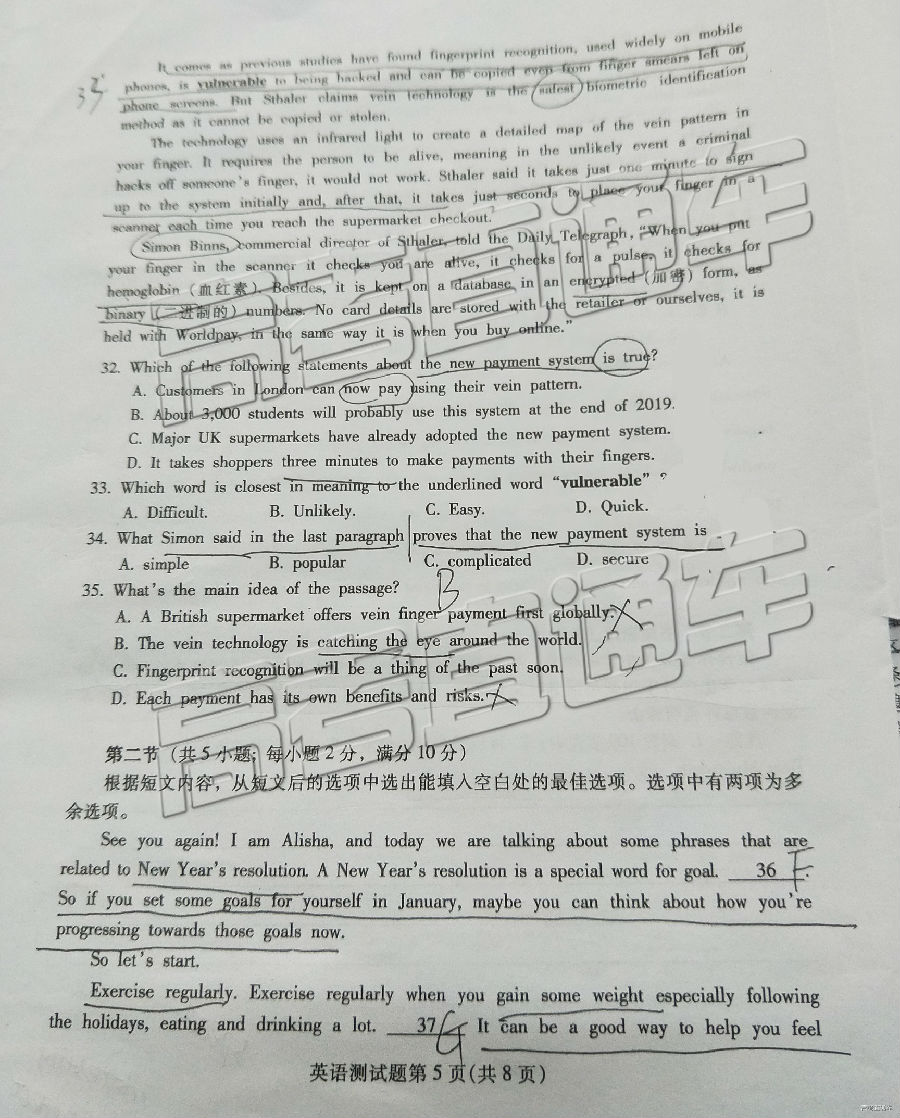 It comes as previous studies have found fingerprint recognition, used widely on mobile
33
phones, is vulnerable to being hacked and can be copied even from finger smears left on
phone screens. But Sthaler claims vein technology is the safest biometric identification
method as it cannot be copied or stolen.
The technology uses an infrared light to create a detailed map of the vein pattern in
your finger. It requires the person to be alive, meaning in the unlikely event a criminal
hacks off someone's finger, it would not work. Sthaler said it takes just one minute to sign
up to the system initially and, after that, it takes just seconds to place your finger in a
scanner each time you reach the supermarket checkout.
Simon Binns, commercial director of Sthaler, told the Daily Telegraph, "When you put
your finger in the scanner it checks you are alive, it checks for a pulse, it checks for
hemoglobin (血红素). Besides, it is kept on a database in an encrypted (加密) form, as
binary (二进制的) numbers. No card details are stored with the retailer or ourselves, it is
held with Worldpay, in the same way it is when you buy online."
32. Which of the following statements about the new payment system is true?
A. Customers in London can now pay using their vein pattern.
B. About 3,000 students will probably use this system at the end of 2019.
C. Major UK supermarkets have already adopted the new payment system.
D. It takes shoppers three minutes to make payments with their fingers.
33. Which word is closest in meaning to the underlined word "vulnerable" ?
A. Difficult. B. Unlikely. C. Easy. D. Quick.
34. What Simon said in the last paragraph proves that the new payment system is
A. simple B. popular C. complicated D. secure
35. What's the main idea of the passage? B
A. A British supermarket offers vein finger payment first globally.
B. The vein technology is catching the eye around the world.
C. Fingerprint recognition will be a thing of the past soon.
D. Each payment has its own benefits and risks.
高考直通车
高考直通车
第二节 (共5小题; 每小题2分, 满分10分)
根据短文内容, 从短文后的选项中选出能填入空白处的最佳选项。选项中有两项为多
余选项。
See you again! I am Alisha, and today we are talking about some phrases that are
related to New Year's resolution. A New Year's resolution is a special word for goal. 36 F.
So if you set some goals for yourself in January, maybe you can think about how you're
progressing towards those goals now.
So let's start.
Exercise regularly. Exercise regularly when you gain some weight especially following
the holidays, eating and drinking a lot. 37 G It can be a good way to help you feel
英语测试题第5页(共8页)